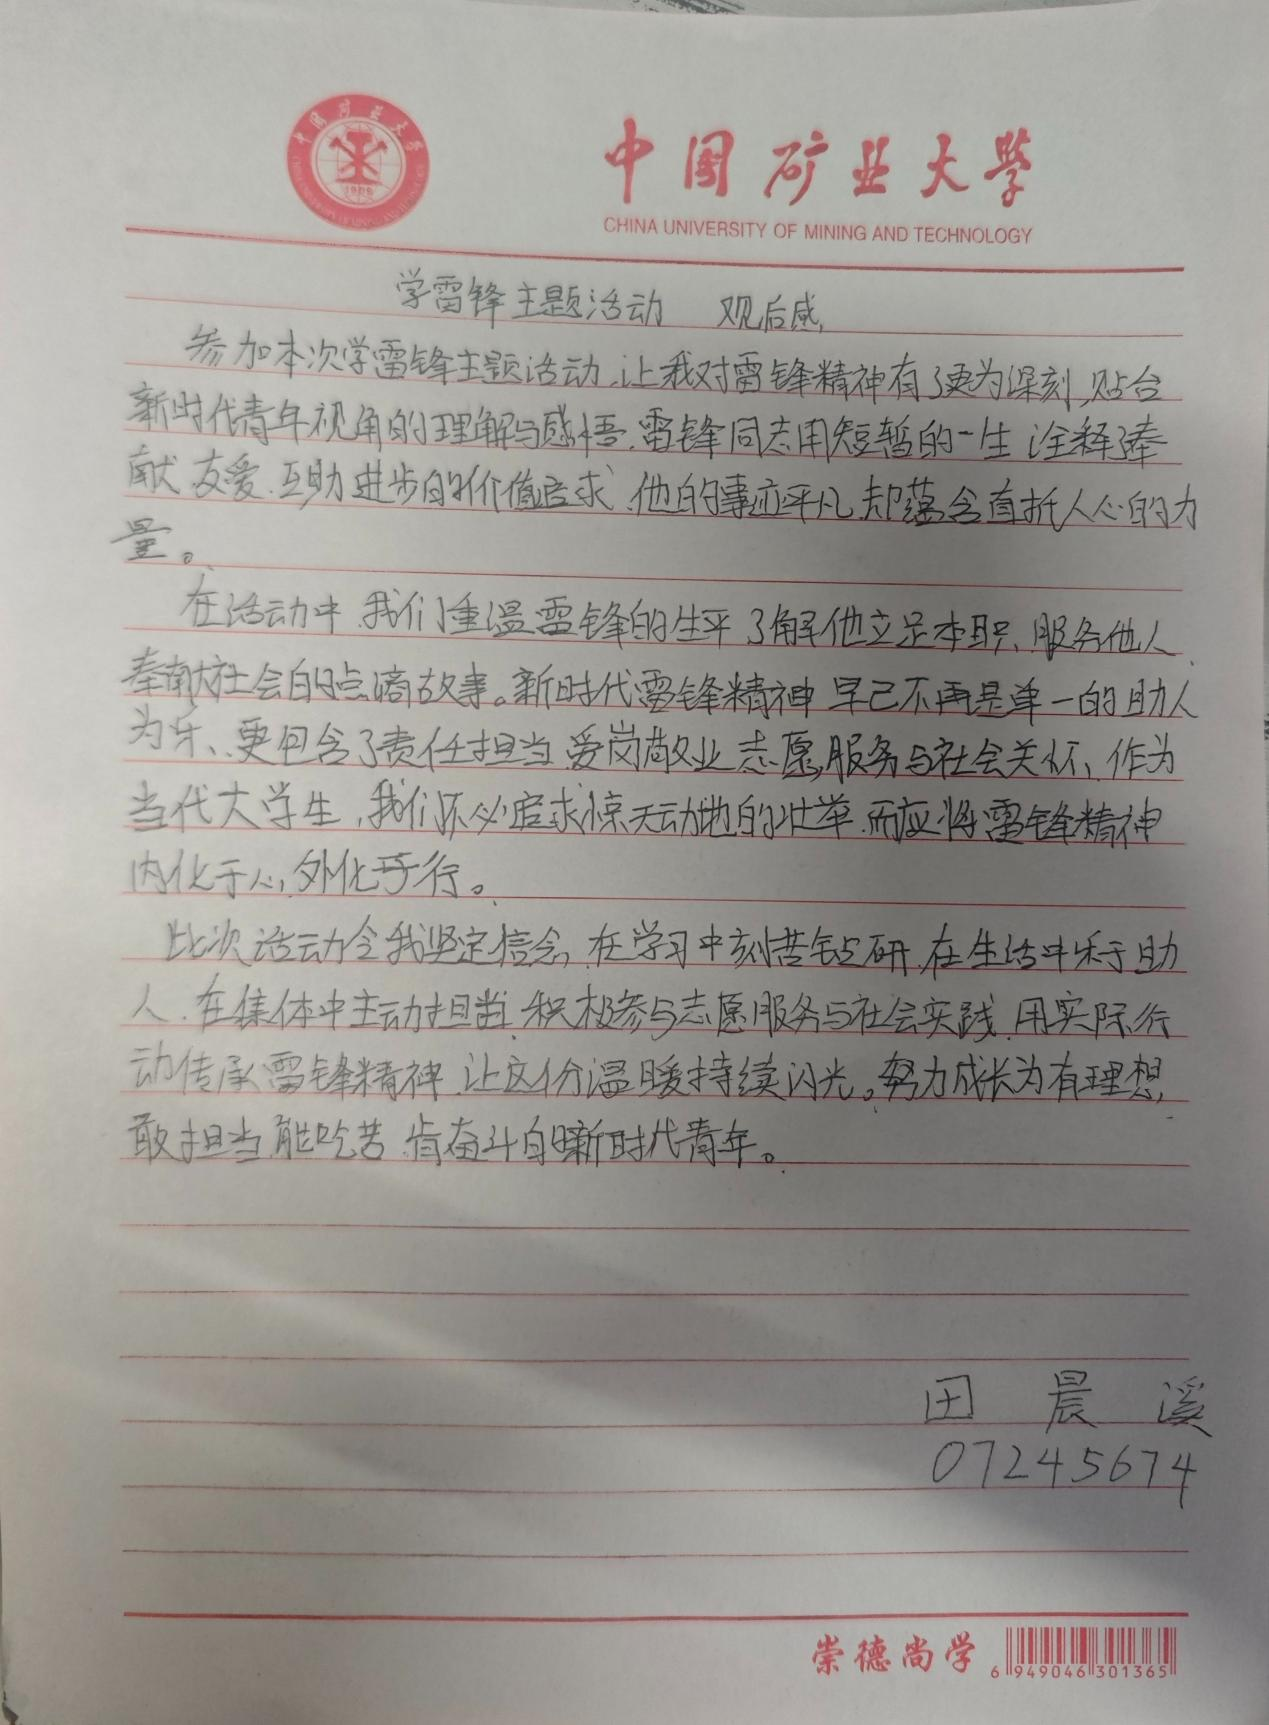 中国矿业大学
1909
中国矿业大学
CHINA UNIVERSITY OF MINING AND TECHNOLOGY
学雷锋主题活动 观后感
参加本次学雷锋主题活动,让我对雷锋精神有了更为深刻,贴合
新时代青年视角的理解与感悟.雷锋同志用短暂的一生 诠释了奉
献 友爱.互助 进步的价值追求.他的事迹平凡 却蕴含直抵人心的力
量。
在活动中 我们重温雷锋的生平 了解他立足本职、服务他人、
奉献社会的点滴故事。新时代雷锋精神 早已不再是单一的助人
为乐、更包含了责任担当 爱岗敬业 志愿服务与社会关怀、作为
当代大学生,我们不必追求惊天动地的壮举.而应将雷锋精神
内化于心,外化于行。
此次活动令我坚定信念,在学习中刻苦钻研,在生活中乐于助
人.在集体中主动担当 积极参与志愿服务与社会实践 用实际行
动传承雷锋精神.让这份温暖持续闪光。努力成长为有理想,
敢担当 能吃苦.肯奋斗的新时代青年。
田 晨 溪
07245674
崇德尚学
6 949046 301365